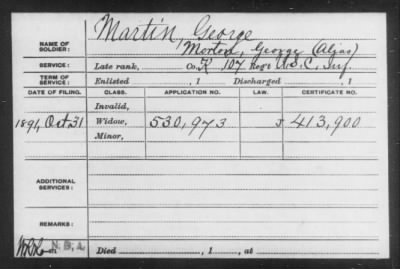 Martin, George
NAME OF SOLDIER: Morton, George (Alias)
SERVICE: Late rank, Co. K 107 Reg't U.S.C. Inf.
TERM OF SERVICE: Enlisted , 1 Discharged , 1
DATE OF FILING. CLASS. APPLICATION NO. LAW. CERTIFICATE NO.
Invalid,
1891, Oct. 31 Widow, 530,973 J 413,900
Minor,
ADDITIONAL SERVICES:
REMARKS:
Died , 1 , at